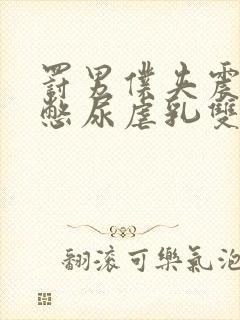 罰男僕失震
憋尿虐乳雙
翻滾可樂氣泡